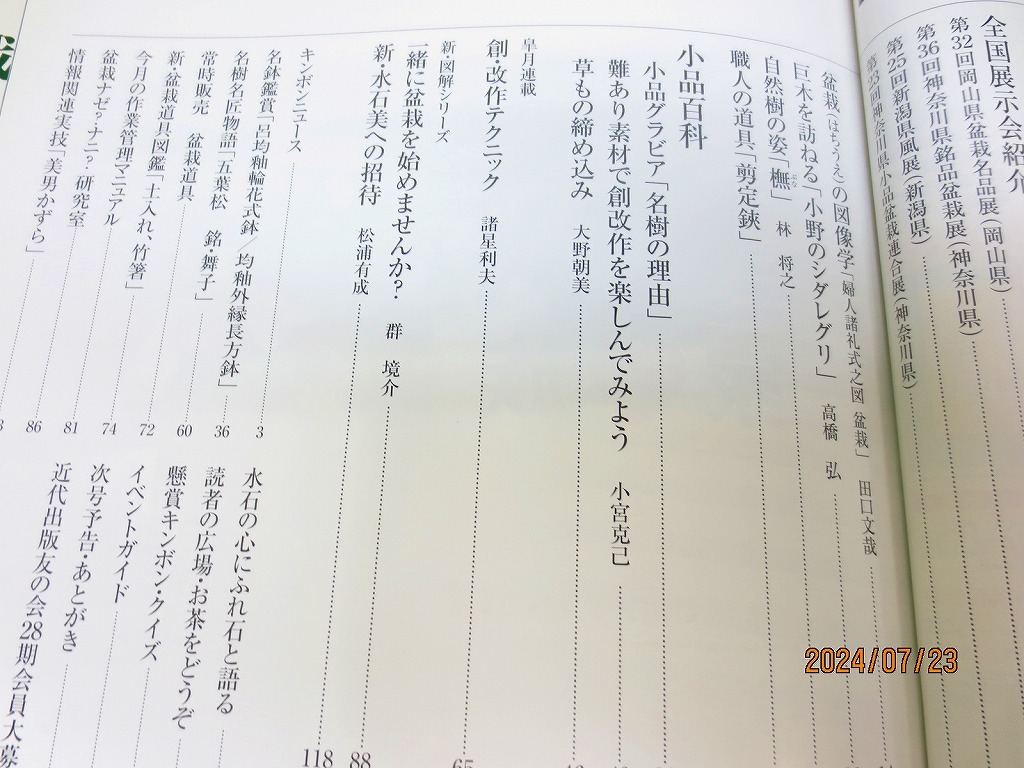 全国展示会紹介
第32回岡山県盆栽名品展(岡山県)
第36回神奈川県銘品盆栽展(神奈川県)
第25回新潟県風展(新潟県)
第23回神奈川県小品盆栽連合展(神奈川県)
盆栽(はちうえ)の図像学「婦人諸礼式之図 盆栽」 田口文哉
巨木を訪ねる「小野のシダレグリ」 高橋 弘
自然樹の姿「橅」 林 将之
ぶな
職人の道具「剪定鋏」
小品百科
小品グラビア「名樹の理由」
難あり素材で創改作を楽しんでみよう 小宮克己
草もの締め込み 大野朝美
皐月連載
創・改作テクニック 諸星利夫 65
新・図解シリーズ
一緒に盆栽を始めませんか?・ 群 境介 88
新・水石美への招待 松浦有成 118
キンボンニュース 3
名鉢鑑賞「呂均釉輪花式鉢/均釉外縁長方鉢」 36
名樹名匠物語「五葉松 銘 舞子」 60
常時販売 盆栽道具
新・盆栽道具図鑑「土入れ、竹箸」 72
今月の作業管理マニュアル 74
盆栽ナゼ?・ナニ?・研究室 81
情報関連実技「美男かずら」 86
水石の心にふれ石と語る
読者の広場・お茶をどうぞ
懸賞キンボン・クイズ
イベントガイド
次号予告・あとがき
近代出版友の会28期会員大募
2024/07/23